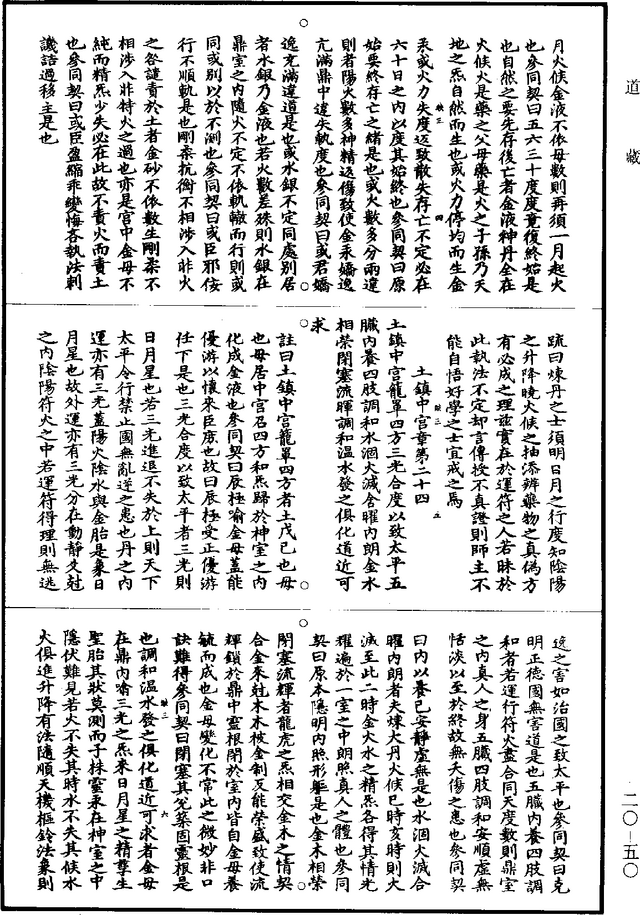 道藏
月火候金液不依母數則再須一月起火
也參同契曰五六三十度度竟復終始是
也自然之要先存後亡者金液神丹全在
火候火是藥之父母藥是火之子孫乃天
地之炁自然而生也或火力停均而生金
汞或火力失度返致散失存亡不定必在
六十日之內以度其始終也參同契曰原
始要終存亡之緒是也或火數多分兩違
則者陽火數多神精返傷致使金汞嬌逸
亢滿鼎中違失軌度也參同契曰或君嬌
逸亢滿違道是也或水銀不定同處別居
者水銀乃金液也若火數差殊則水銀在
鼎室之內隨火不定不依軌轍而行則或
同或別以於不測也參同契曰或臣邪佞
行不順軌是也剛柔抗衡不相涉入非火
之咎譴責於土者金砂不依數生剛柔不
相涉入非特火之過也亦是宮中金母不
純而精炁少失必在此故不責火而責土
也參同契曰或臣盈縮乖變悔吝執法刺
譏詰過移主是也
疏曰煉丹之士須明日月之行度知陰陽
之升降曉火候之抽添辨藥物之真偽方
有必成之理茲實在於運符之人若昧於
此執法不定却言傳授不真證則師主不
能自悟好學之士宜戒之焉
土鎮中宮章第二十四
土鎮中宮籠罩四方三光合度以致太平五
臟內養四肢調和水涸火滅含曜內朗金水
相榮閉塞流暉調和溫水發之俱化道近可
求
註曰土鎮中宮籠罩四方者土戊己也母
也母居中宮召四方和炁歸於神室之內
化成金液也參同契曰辰極喻金母蓋能
優游以懷來臣庶也故曰辰極受正優游
任下是也三光合度以致太平者三光則
日月星也若三光進退不失於上則天下
太平令行禁止國無亂逆之患也丹之內
運亦有三光蓋陽火陰水與金胎是象日
月星也故外運亦有三光分在動靜爻尅
之內陰陽符火之中若運符得理則無逃
逸之害如治國之致太平也參同契曰克
明正德國無害道是也五臟內養四肢調
和者若運行符火盡合同天度數則鼎室
之內真人之身五臟四肢調和安順虛無
恬淡以至於終故無夭傷之患也參同契
曰內以養己安靜虛無是也水涸火滅合
曜內朗者夫煉大丹火候巳時亥時則火
滅至此二時金火水之精炁各得其情光
耀遍於一室之中朗照真人之體也參同
契曰原本隱明內照形軀是也金木相榮
閉塞流輝者龍虎之炁相交金木之情契
合金來尅木木被金制反能榮盛致使流
輝鎖於鼎中靈根閉於室內皆自金母養
毓而成也金母變化不常此之微妙非口
訣難得參同契曰閉塞其兌築固靈根是
也調和溫水發之俱化道近可求者金母
在鼎內喻三光之炁來日月星之精孳生
聖胎其狀莫測而子株靈汞在神室之中
隱伏難見若火不失其時水不失其候水
火俱進升降有法隨順天機樞鈴法象則
二〇—五〇